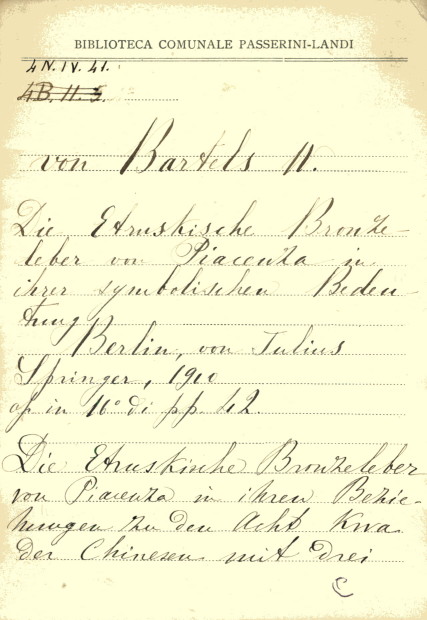 BIBLIOTECA COMUNALE PASSERINI-LANDI
4N.IV.41.
4B.II.5.
von Bartels M.
Die Etruskische Bronze-
leber von Piacenza in
ihrer symbolischen Bedeu
tung
Berlin, von Julius
Springer, 1910
op in 16° di pp. 42.
Die Etruskische Bronzeleber
von Piacenza in ihren Bezie-
hungen zu den Acht Kwa
der Chinesen mit drei